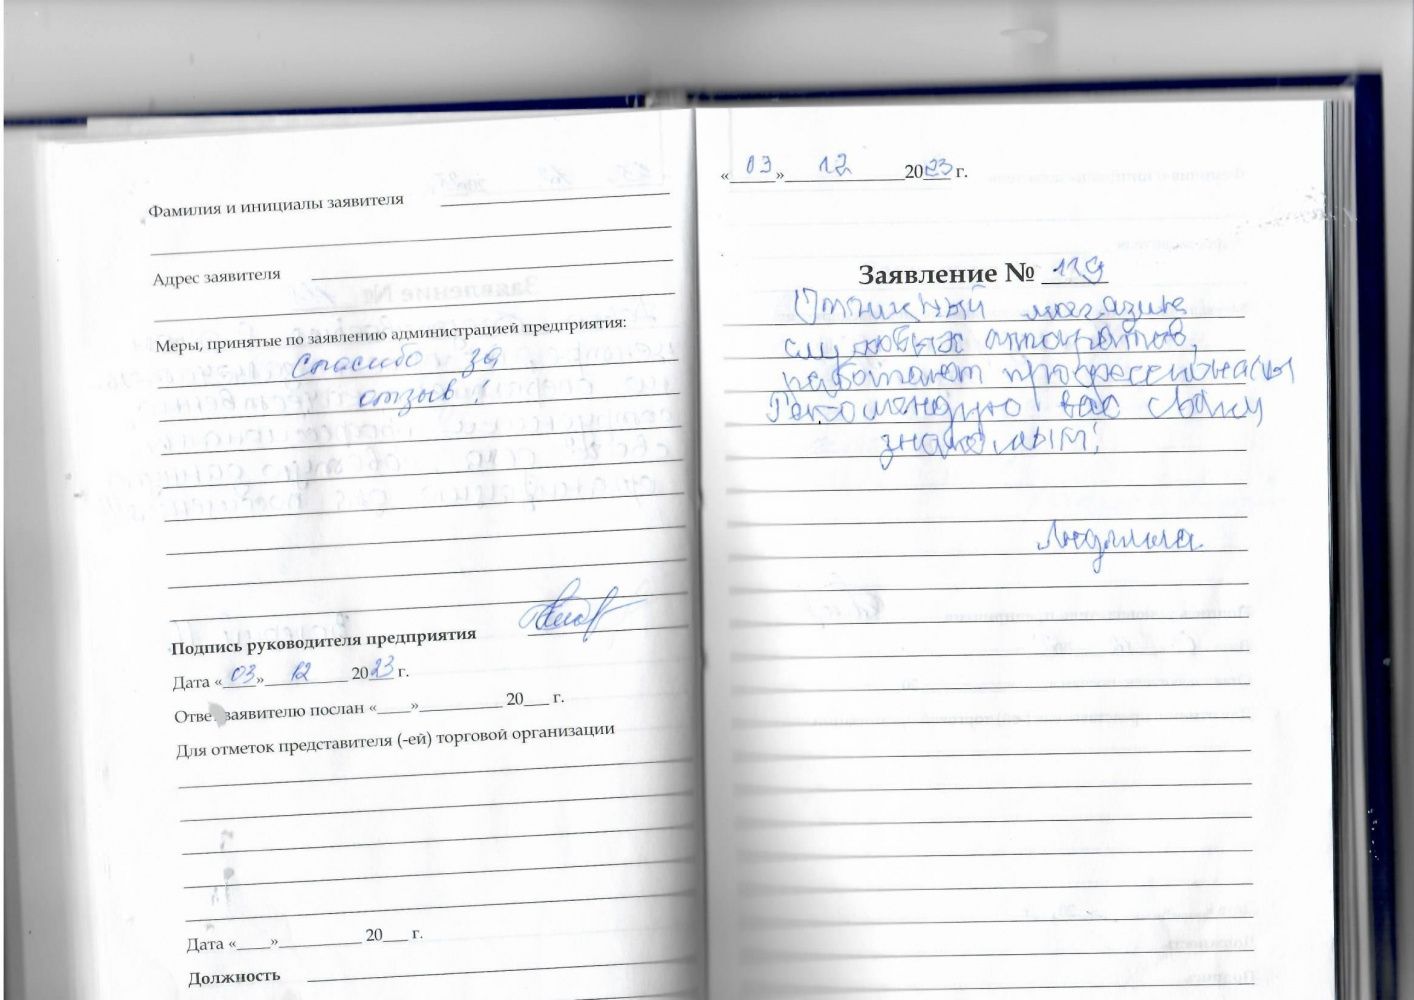 Фамилия и инициалы заявителя
Адрес заявителя
Меры, принятые по заявлению администрацией предприятия:
Спасибо за
отзыв!
Подпись руководителя предприятия
Дата «03» 12 2023 г.
Ответ заявителю послан «____»__________ 20___ г.
Для отметок представителя (-ей) торговой организации
Дата «____»__________ 20___ г.
Должность
«03» 12 2023 г.
Заявление № 119
Отличный магазин
слуховых аппаратов,
работают профессионалы
Рекомендую вас своим
знакомым!
Людмила